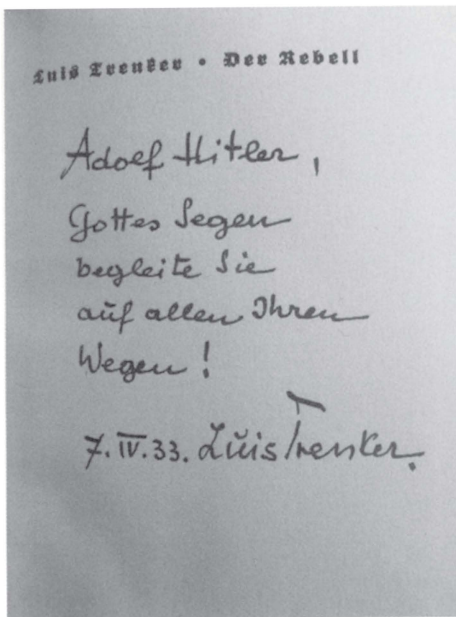 Luis Trenker • Der Rebell
Adolf Hitler,
Gottes Segen
begleite Sie
auf allen Ihren
Wegen!
7.IV.33. Luis Trenker.